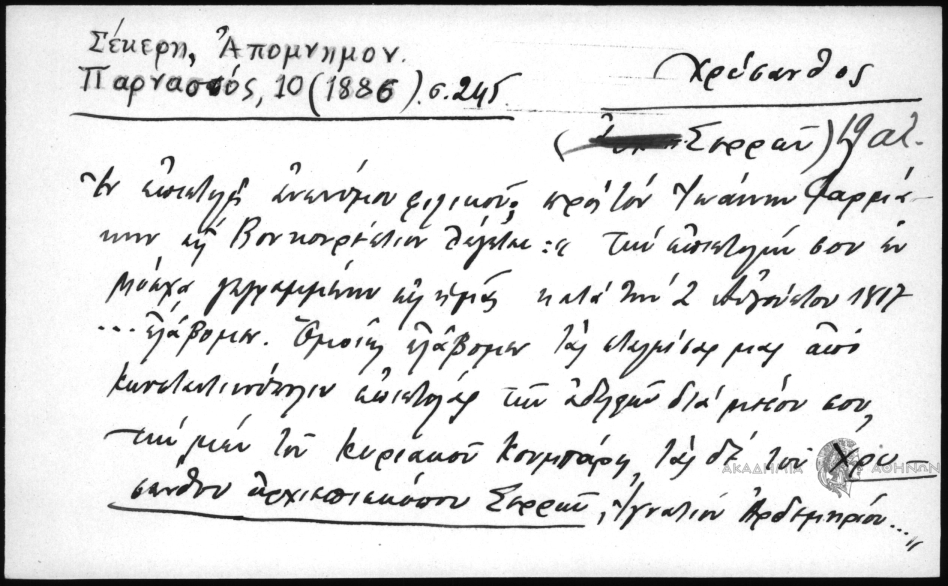 Σέκερη, Ἀπομνημον.
Παρνασσός, 10 (1886). σ. 245.
Χρύσανθος
(Σερρῶν)
Ἐν ἐπιστολῇ ἀνωνύμου φιλικοῦ πρὸς τὸν Ἰωάννην Φαρμά-
κην εἰς Βουκουρέστιον λέγεται: « Τὴν ἐπιστολήν σου ἐκ
Μόσχα γεγραμμένην εἰς ἡμᾶς κατὰ τὴν 2 Αὐγούστου 1817
... ἐλάβομεν. Ὁμοίως ἐλάβομεν τὰς σταλμέσας μας ἀπὸ
Κωνσταντινούπολιν ἐπιστολὰς τῶν ἀδελφῶν διὰ μέσου σου,
τὴν μὲν τοῦ Κυριακοῦ Κουμπάρη, τὰς δὲ τοῦ Χρυ-
σάνθου ἀρχιεπισκόπου Σερρῶν, Ἰγνατίου Ἀρδαμηρίου...»
ΑΚΑΔΗΜΙΑ ΑΘΗΝΩΝ